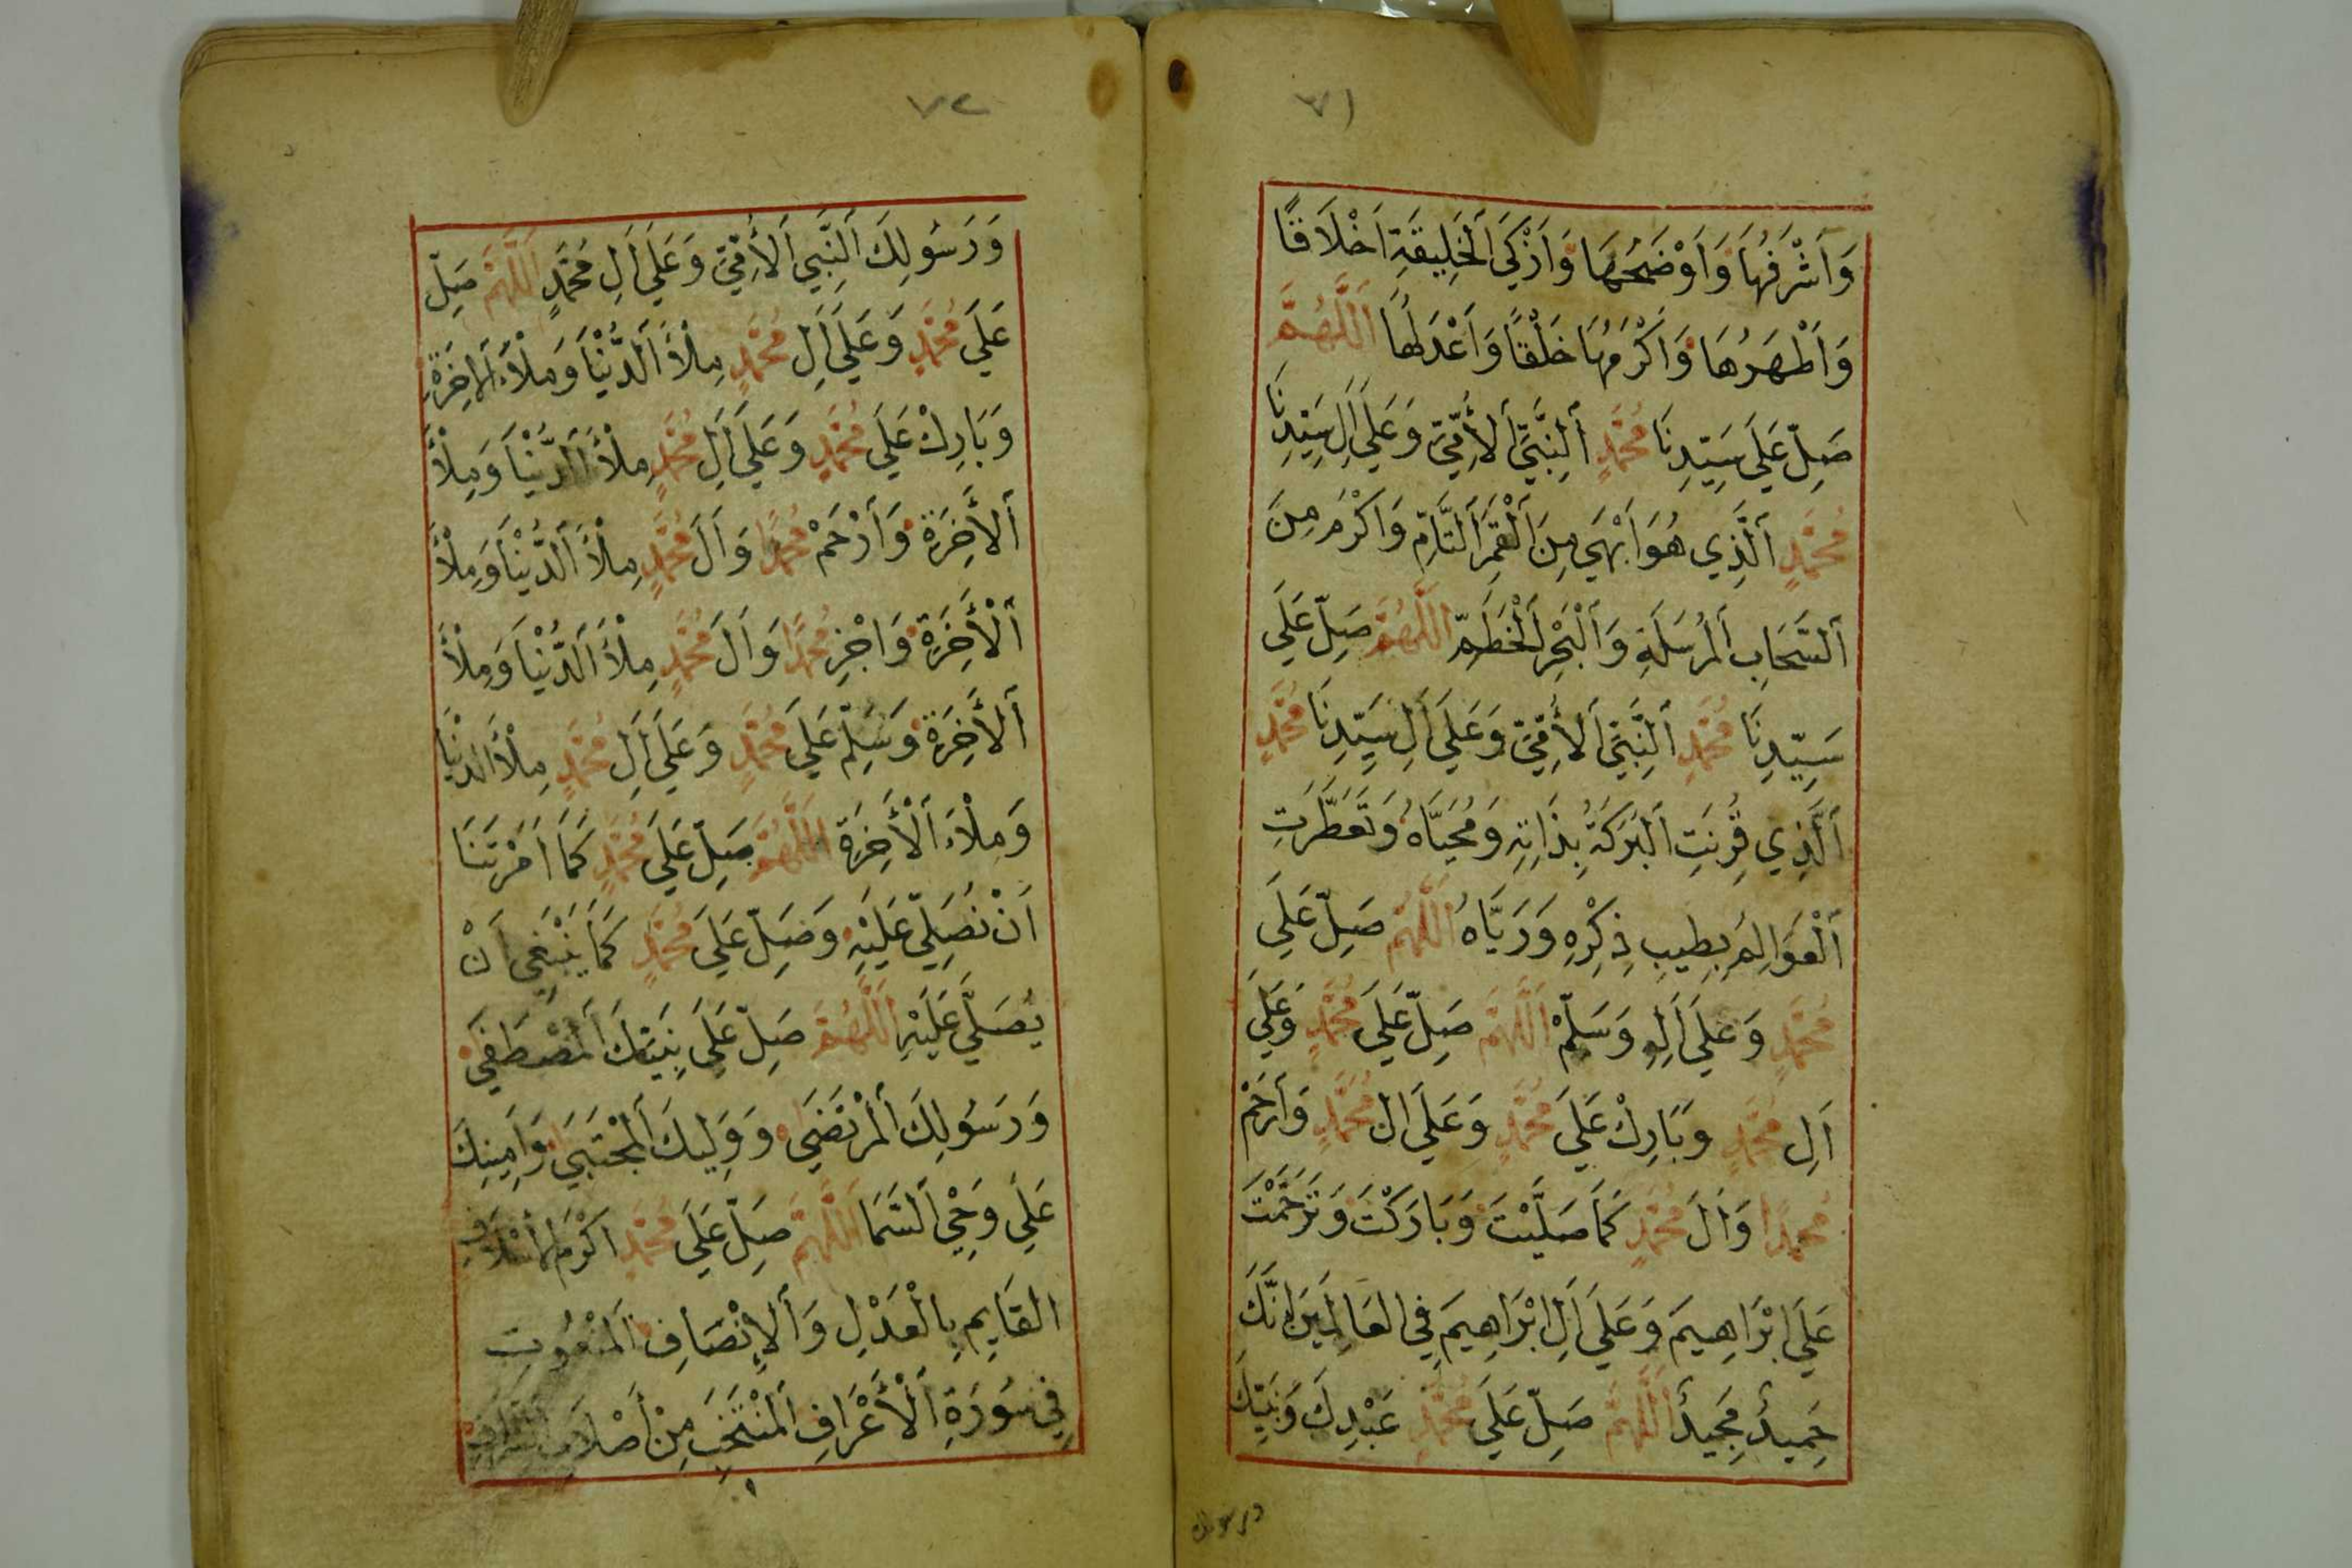 ٧١
وَاَشْرَفُهَا وَاَوْضَحُهَا وَاَزْكَي اَلْخَلِيقَةِ اَخْلَاقًا
وَاَطْهَرُهَا وَاَكْرَمُهَا خَلْقًا وَاَعْدَلُهَا اَللَّهُمَّ
صَلِّ عَلَي سَيِّدِنَا مُحَمَّدٍ اَلنَّبِيِّ اَلأُمِّيِّ وَعَلَي اَلِ سَيِّدِنَا
مُحَمَّدٍ اَلَّذِي هُوَ اَبْهَي مِنَ اَلْقَمَرِ اَلتَّامِّ وَاَكْرَمُ مِنَ
اَلسَّحَابِ اَلْمُرْسَلَةِ وَاَلْبَحْرِ اَلْخَطَمِّ اَللَّهُمَّ صَلِّ عَلَي
سَيِّدِنَا مُحَمَّدٍ اَلنَّبِيِّ اَلأُمِّيِّ وَعَلَي اَلِ سَيِّدِنَا مُحَمَّدٍ
اَلَّذِي قُرِنَتِ اَلْبَرَكَةُ بِذَاتِهِ وَمُحَيَّاهُ وَتَعَطَّرَتِ
اَلْعَوَالِمُ بِطِيبِ ذِكْرِهِ وَرَيَّاهُ اَللَّهُمَّ صَلِّ عَلَي
مُحَمَّدٍ وَعَلَي اَلِهِ وَسَلِّمْ اَللَّهُمَّ صَلِّ عَلَي مُحَمَّدٍ وَعَلَي
اَلِ مُحَمَّدٍ وَبَارِكْ عَلَي مُحَمَّدٍ وَعَلَي الِ مُحَمَّدٍ وَاَرْحَمْ
مُحَمَّدًا وَاَلَ مُحَمَّدٍ كَمَا صَلَّيْتَ وَبَارَكْتَ وَتَرَحَّمْتَ
عَلَي اِبْرَاهِيمَ وَعَلَي اَلِ اِبْرَاهِيمَ فِي العَالَمِينَ اِنَّكَ
حَمِيدٌ مَجِيدٌ اَللَّهُمَّ صَلِّ عَلَي مُحَمَّدٍ عَبْدِكَ وَنَبِيِّكَ
ورسولك
٧٢
وَرَسُولِكَ اَلنَّبِيِ اَلأُمِّيِّ وَعَلَي اَلِ مُحَمَّدٍ اَللَّهُمَّ صَلِّ
عَلَي مُحَمَّدٍ وَعَلَي اَلِ مُحَمَّدٍ مِلْأَ اَلدُّنْيَا وَمِلْأَ اَلاخِرَةِ
وَبَارِكْ عَلَي مُحَمَّدٍ وَعَلَي اَلِ مُحَمَّدٍ مِلْأَ اَلدُّنْيَا وَمِلْأَ
اَلأَخِرَةِ وَاَرْحَمْ مُحَمَّدًا وَاَلَ مُحَمَّدٍ مِلْأَ اَلدُّنْيَا وَمِلْأَ
اَلْأَخِرَةِ وَاجْزِ مُحَمَّدًا وَاَلَ مُحَمَّدٍ مِلْأَ اَلدُّنْيَا وَمِلْأَ
اَلأَخِرَةِ وَسَلِّمْ عَلَي مُحَمَّدٍ وَعَلَي اَلِ مُحَمَّدٍ مِلْأَ الدُنْيَا
وَمِلْاءَ اَلْأَخِرَةِ اَللَّهُمَّ صَلِّ عَلَي مُحَمَّدٍ كَمَا اَمَرْتَنَا
اَنْ نُصَلِّيَ عَلَيْهِ وَصَلِّ عَلَي مُحَمَّدٍ كَمَا يَنْبَغِي اَنْ
يُصَلَّي عَلَيْهِ اَللَّهُمَّ صَلِّ عَلَي نَبِيِّكَ اَلْمُصْطَفَي
وَرَسُولِكَ اَلْمُرْتَضَي وَوَلِيِّكَ اَلْمُجْتَبَي وَاَمِينِكَ
عَلَي وَحْيِ اَلسَّمَا اَللَّهُمَّ صَلِّ عَلَي مُحَمَّدٍ اَكْرَمِ اَلْأَسْلَافِ
القَايِمِ بِالْعَدْلِ وَاَلإِنْصَافِ اَلْمَنْعُوتِ
فِي سُورَةِ اَلْأَعْرَافِ اَلْمُنْتَخَبِ مِنْ أَصْلَابِ